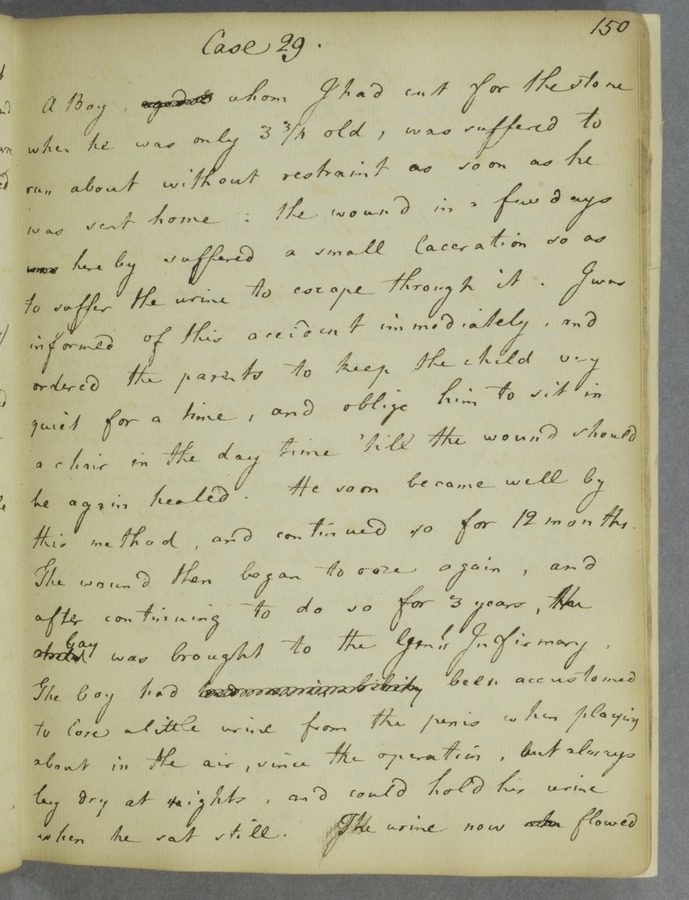 150
Case 29.
A Boy, whom I had cut for the stone
when he was only 3 3/4 old, was suffered to
run about without restraint as soon as he
was sent home: the wound in a few days
here by suffered a small laceration so as
to suffer the urine to escape through it. I was
informed of this accident immediately, and
ordered the parents to keep the child very
quiet for a time, and oblige him to sit in
a chair in the day time 'till the wound should
be again healed. He soon became well by
this method, and continued so for 12 months.
The wound then began to ooze again, and
after continuing to do so for 3 years, the
Boy was brought to the Genl. Infirmary.
The boy had been accustomed
to lose a little urine from the penis when playing
about in the air, since the operation, but always
lay dry at nights, and could hold his urine
when he sat still. The urine now flowed